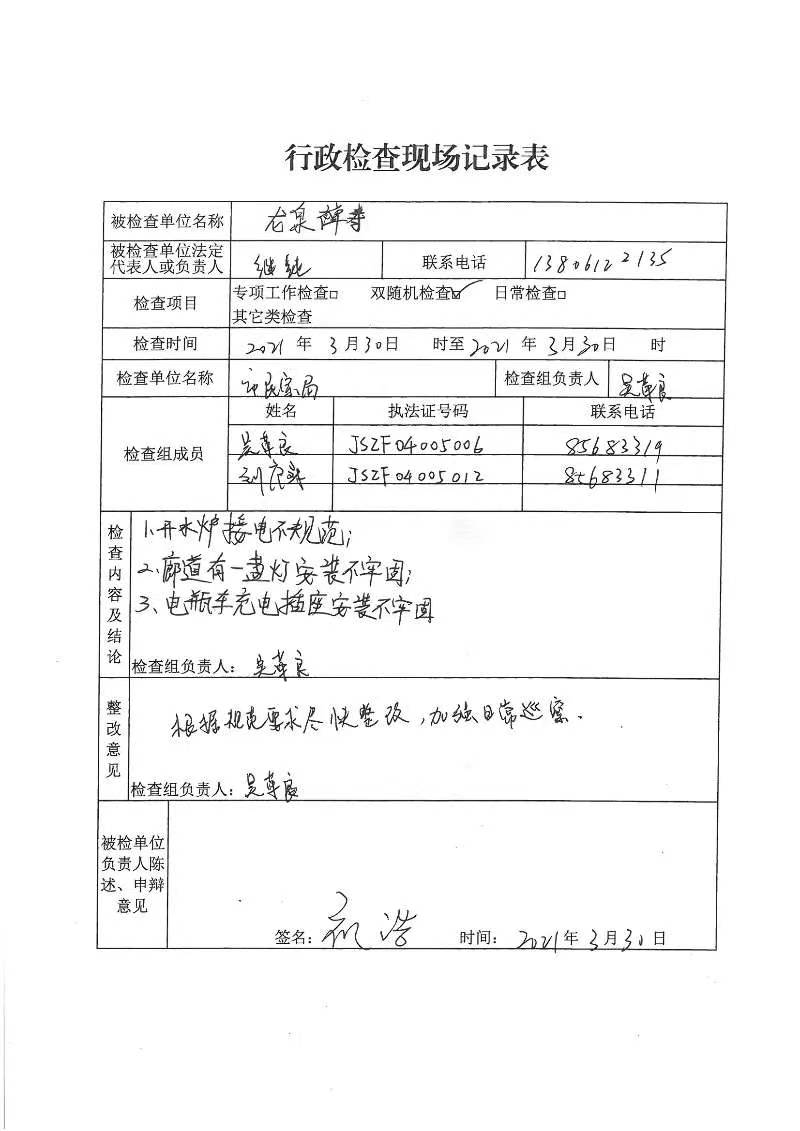 行政检查现场记录表
被检查单位名称 龙泉禅寺
被检查单位法定代表人或负责人 继纯 联系电话 13806122135
检查项目 专项工作检查□ 双随机检查☑ 日常检查□
其它类检查
检查时间 2021 年 3 月 30 日 时至 2021 年 3 月 30 日 时
检查单位名称 市民宗局 检查组负责人 吴草良
检查组成员 姓名 执法证号码 联系电话
吴草良 JSZF04005006 85683319
JSZF04005012 85683311
检查内容及结论
1、开水炉接电不规范;
2、廊道有一盏灯安装不牢固;
3、电瓶车充电插座安装不牢固
检查组负责人: 吴草良
整改意见
根据规范要求尽快整改,加强日常巡察.
检查组负责人: 吴草良
被检单位负责人陈述、申辩意见
签名: 时间: 2021 年 3 月 30 日